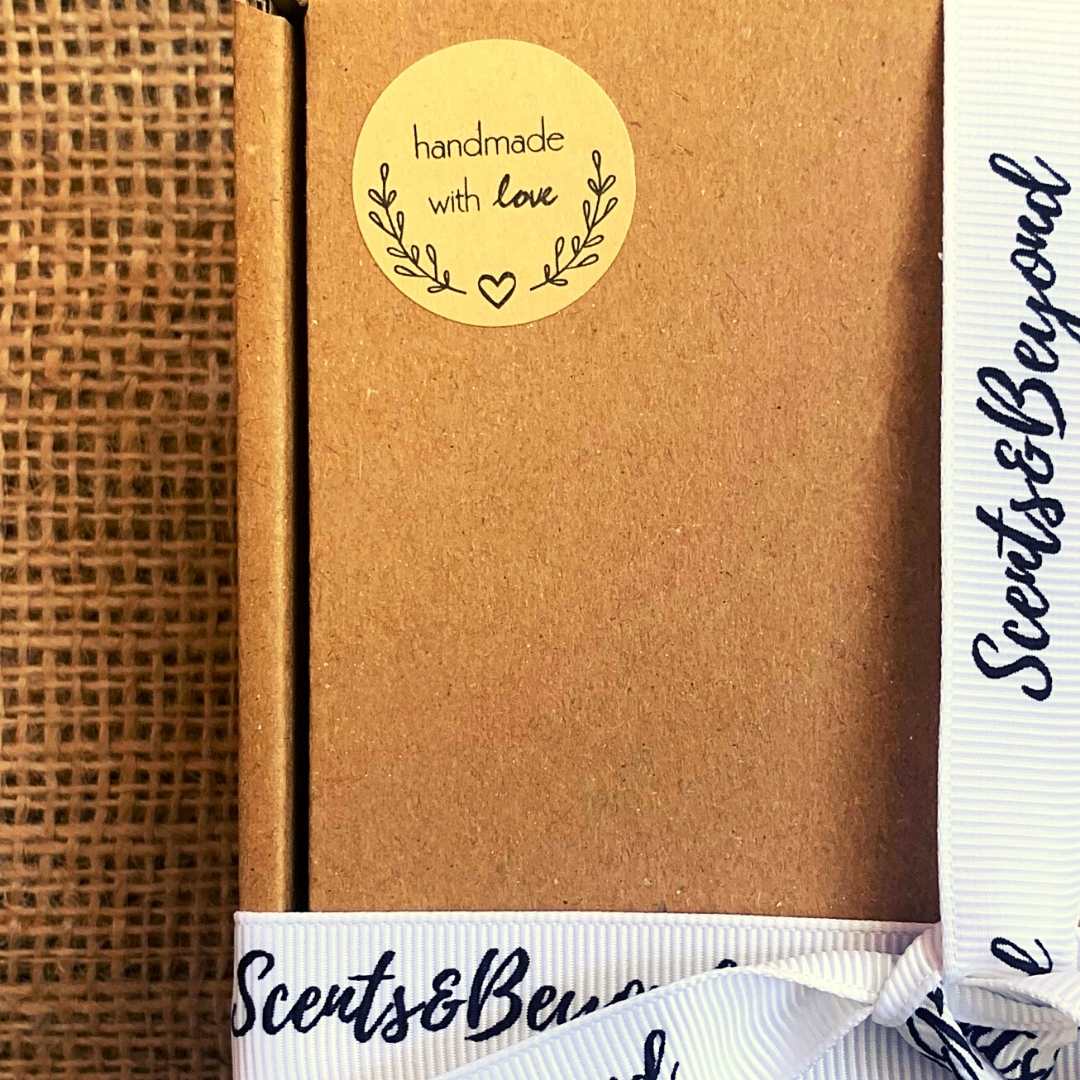 handmade
with love
Scents&Beyond
Scents&Beyond